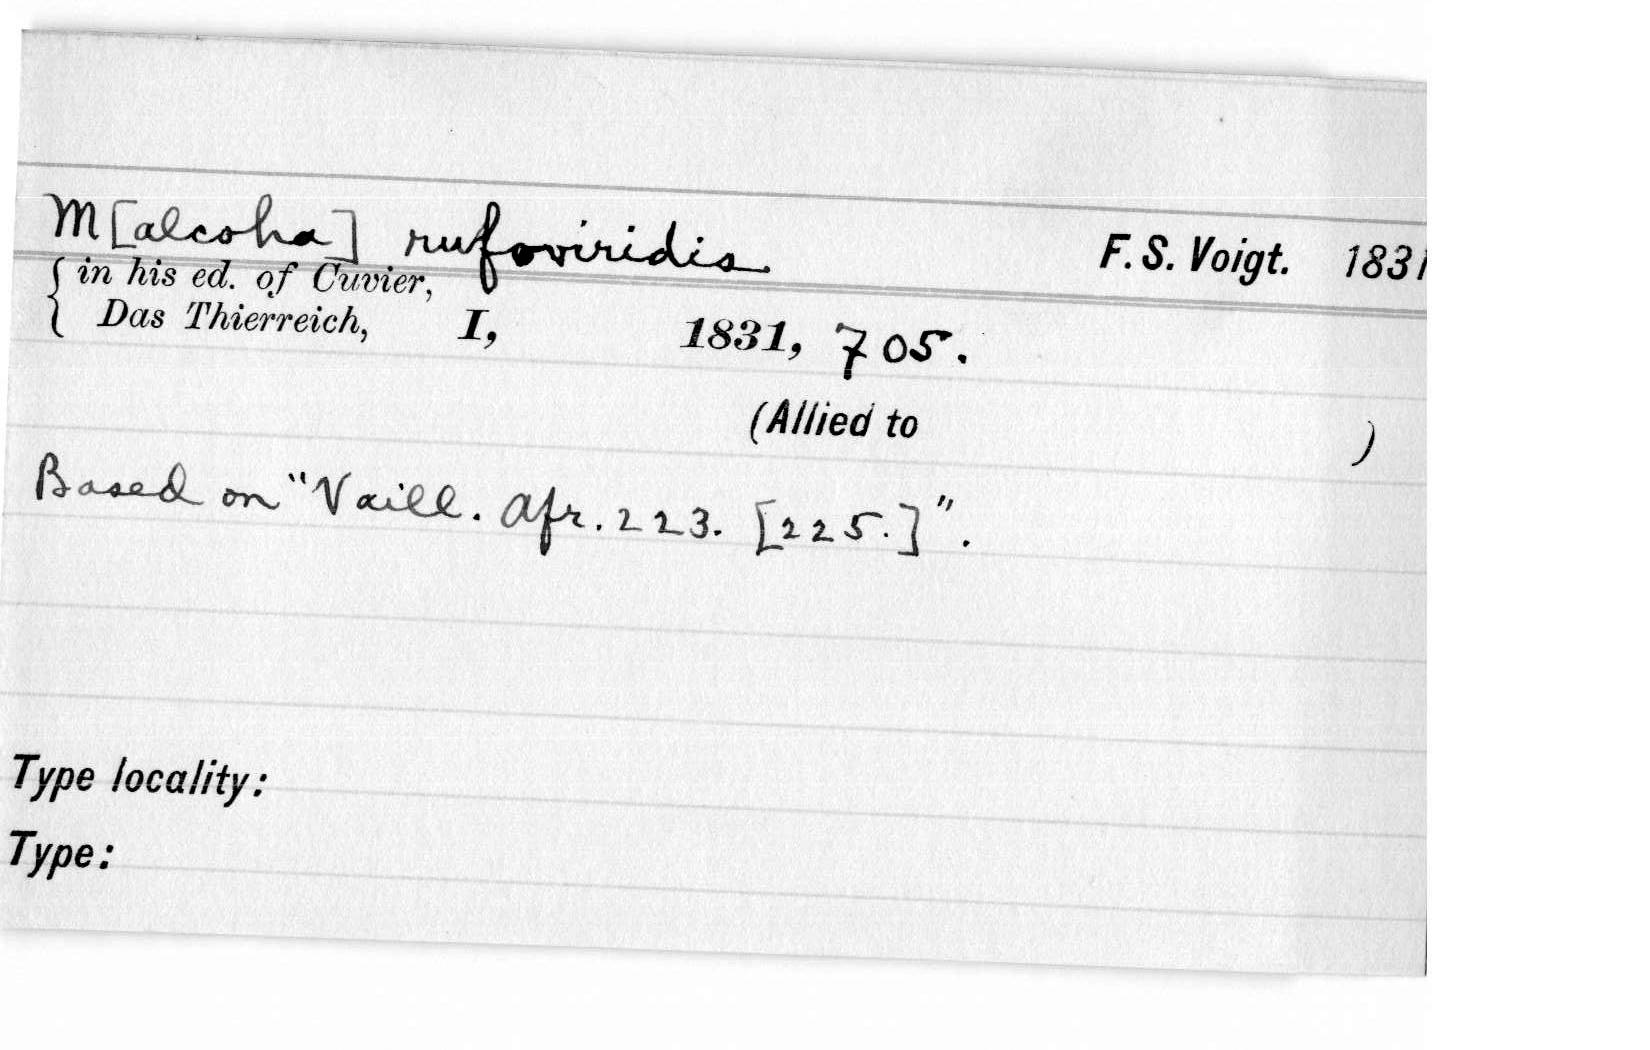 M[alcoha] rufoviridis F. S. Voigt. 1831
in his ed. of Cuvier,
Das Thierreich, I, 1831, 705.
(Allied to )
Based on "Vaill. Afr. 223. [225.]".
Type locality:
Type: